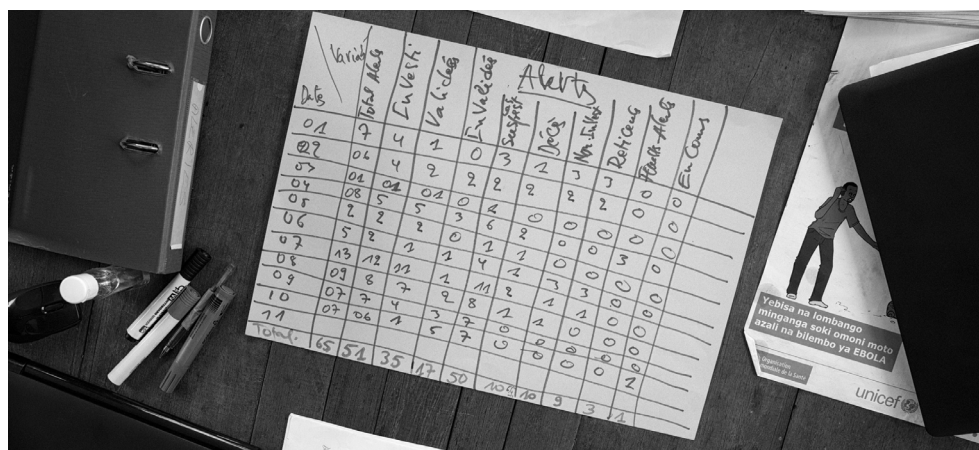 Alerts
Dates
Total Alerts
Investi
Validées
InValidés
Cas Suspect
Décès
En Cours
01 7 4 1 0 3 1 3 3 0 0
02 06 4 2 2 2 2 2 2 0 0
03 01 01 01 0 1 0 0 0 0
04 08 5 5 3 6 2 0 0 3 0
05 2 2 2 0 1 1 0 0 0
06 5 2 1 1 4 1 3 3 0 0
07 13 12 11 1 11 2 1 1 0 0
08 09 8 7 2 8 1 1 0 0
09 07 7 4 3 7 0 0 0 0
10 07 06 1 5 7 0 0 0 2
11
Total. 65 51 35 17 50 10 9 3 1
Yebisa na lombango
minganga soki omoni moto
azali na bilembo ya EBOLA
Organisation
mondiale de la Santé
unicef